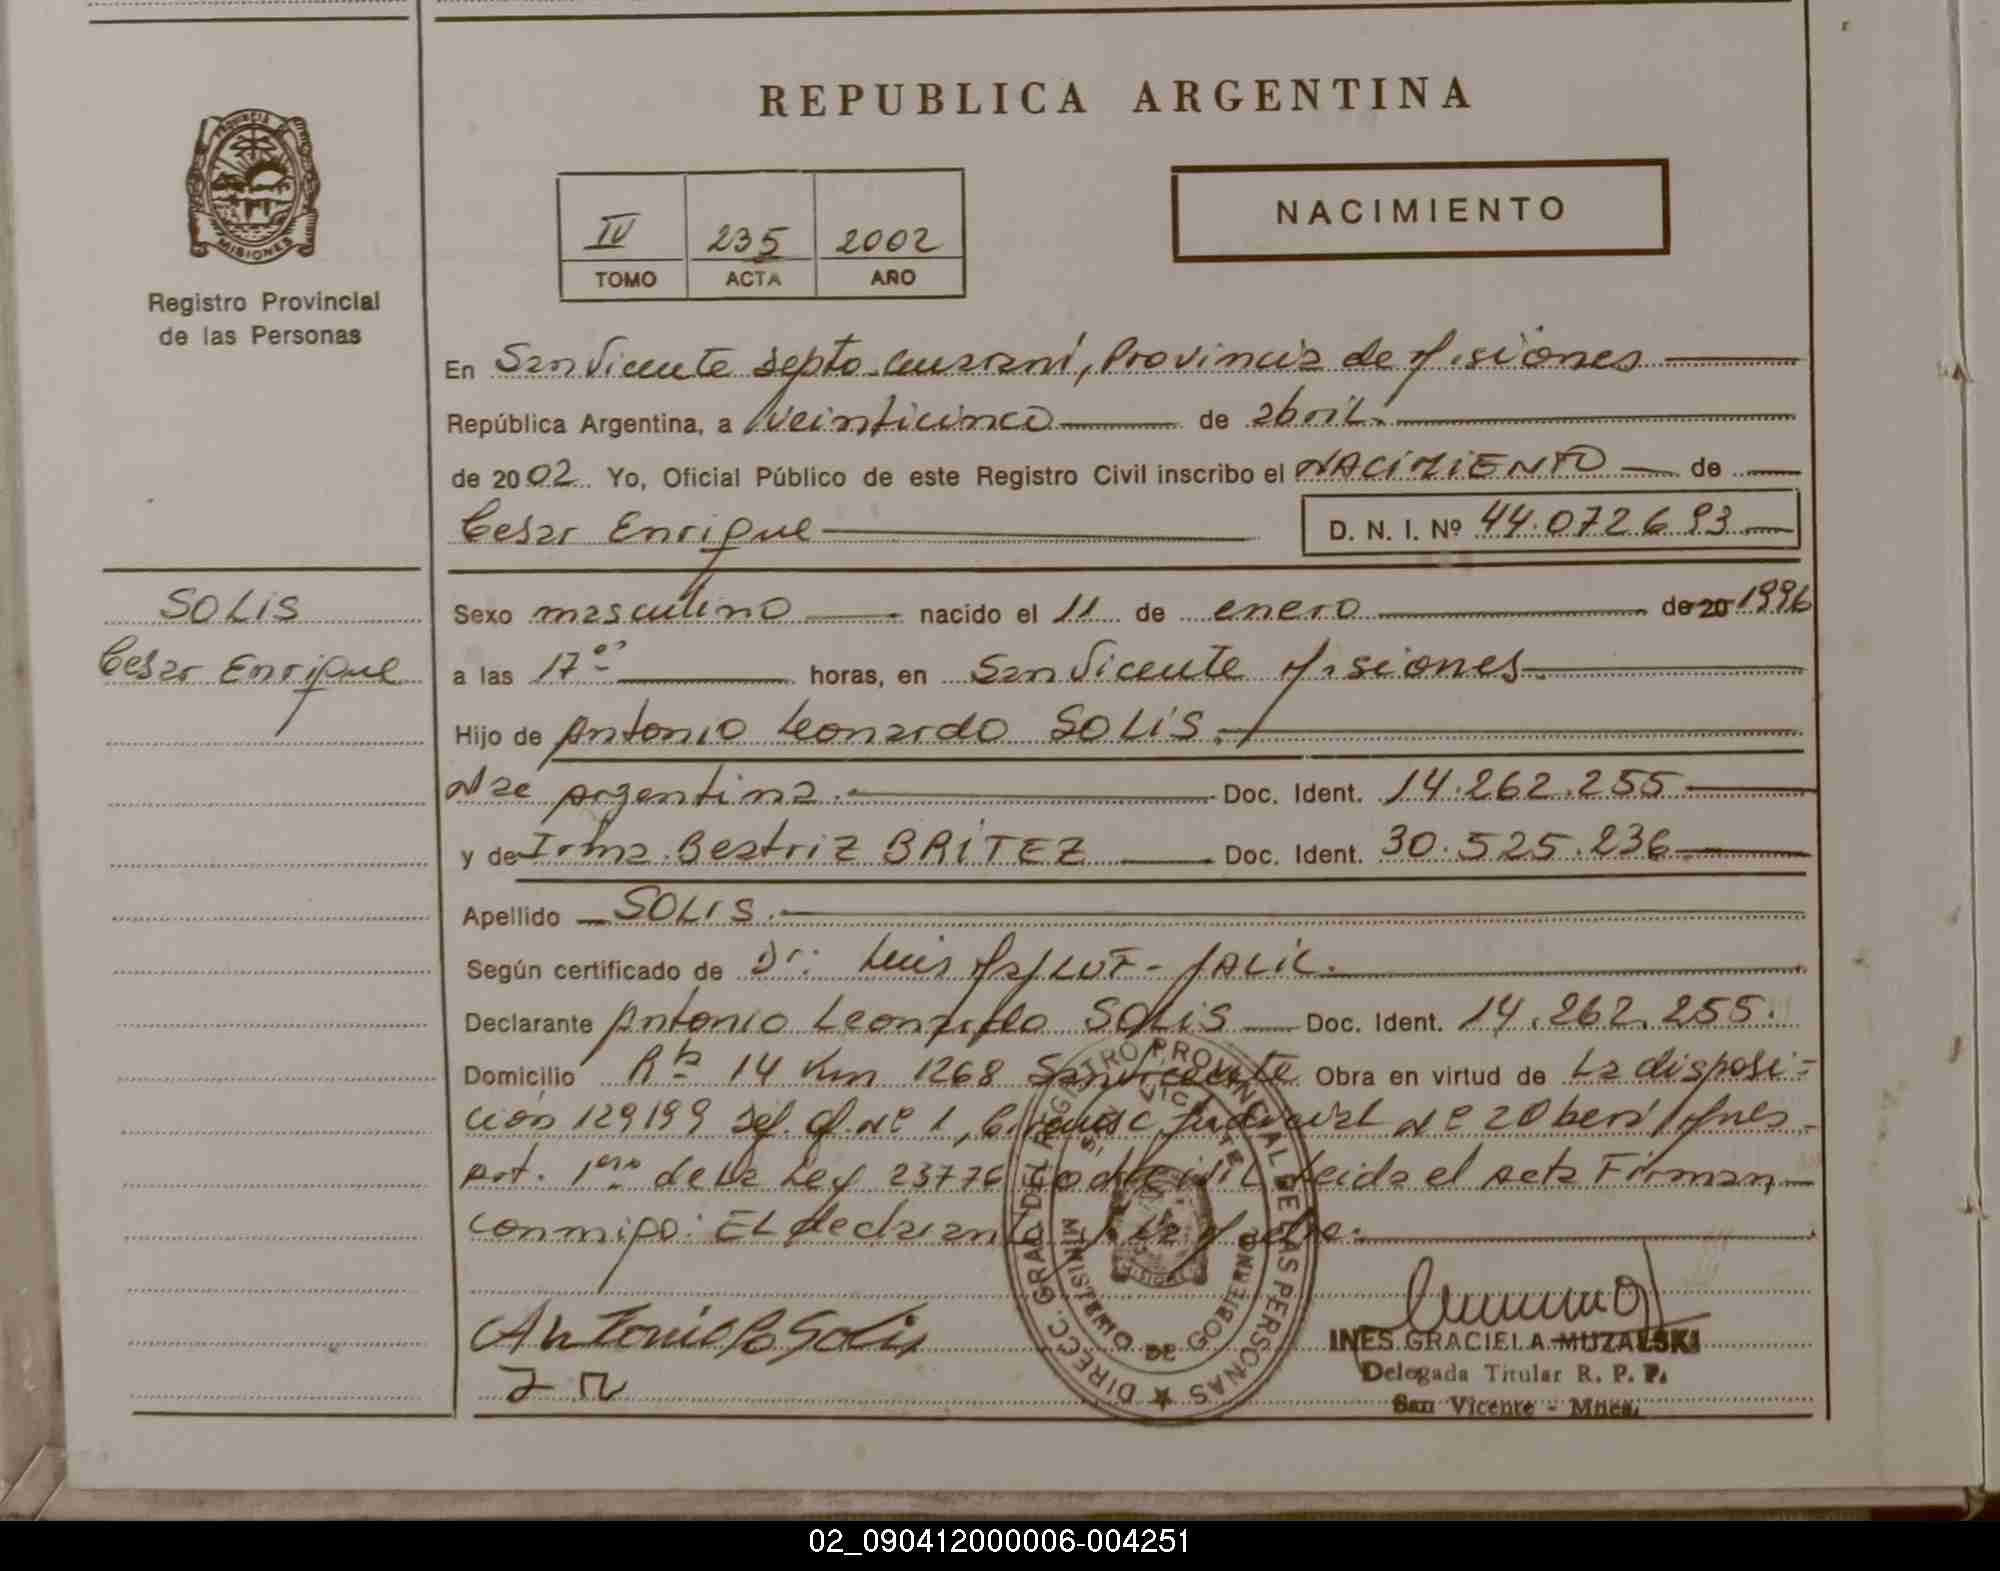 REPUBLICA ARGENTINA
PROVINCIA DE
MISIONES
Registro Provincial
de las Personas
IV 235 2002
TOMO ACTA AÑO
NACIMIENTO
En San Vicente Depto. Guaraní, Provincia de Misiones
República Argentina, a veinticinco de abril.
de 2002. Yo, Oficial Público de este Registro Civil inscribo el NACIMIENTO de
Cesar Enrique D. N. I. Nº 44.072.693
SOLIS
Cesar Enrique
Sexo masculino nacido el 11 de enero de 20 1996
a las 17 horas, en San Vicente Misiones
Hijo de Antonio Leonardo SOLIS.
Nac argentina. Doc. Ident. 14.262.255
y de Irma Beatriz BRITEZ Doc. Ident. 30.525.236
Apellido SOLIS.
Según certificado de Dr. Luis JALIL.
Declarante Antonio Leonardo SOLIS Doc. Ident. 14.262.255.
Domicilio Rta 14 Km 1268 San Vicente Obra en virtud de La disposi-
ción 129199 Nº 1, Judicial Nº 2 Oberá Mnes
Art. 1ero de la Ley 23776 Leida el acta Firman,
conmigo: El declarante y la Madre.
Antonio L Solis
I B
DIRECC. GRAL. DEL REGISTRO PROVINCIAL DE LAS PERSONAS
SAN VICENTE
MINISTERIO DE GOBIERNO
MISIONES
INES GRACIELA MUZALSKI
Delegada Titular R. P. P.
San Vicente - Mnes.
02_090412000006-004251